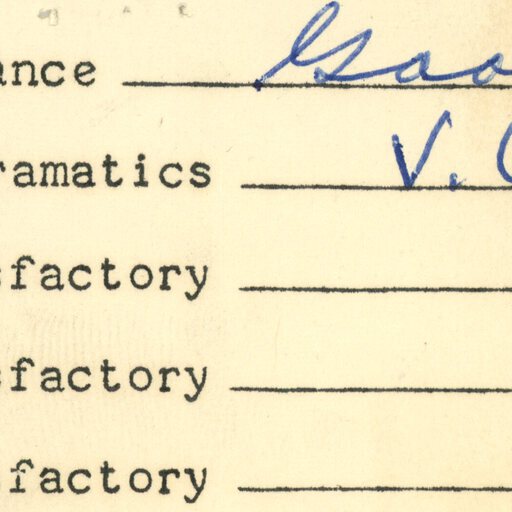 ance Goo
ramatics V.
sfactory
sfactory
sfactory